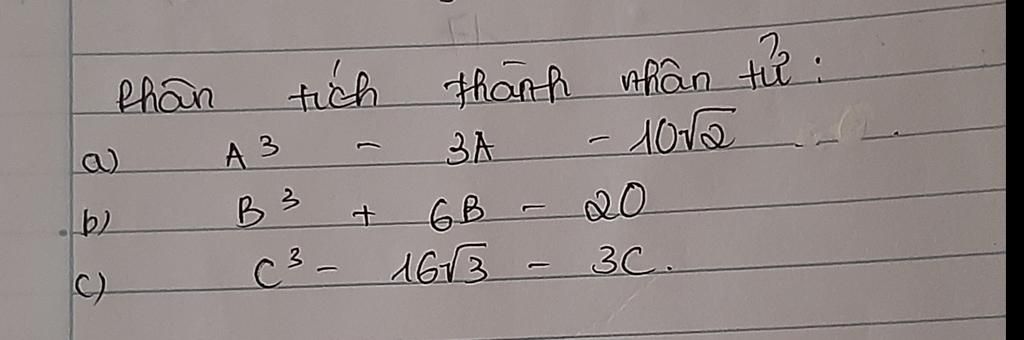 Phân tích thành nhân tử :
a) A³ - 3A - 10√2
b) B³ + 6B - 20
c) C³ - 16√3 - 3C.